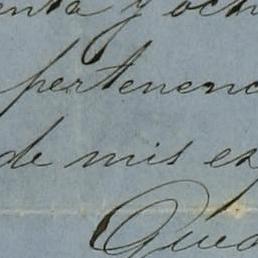 enta y och
pertenenc
de mis es
Qued